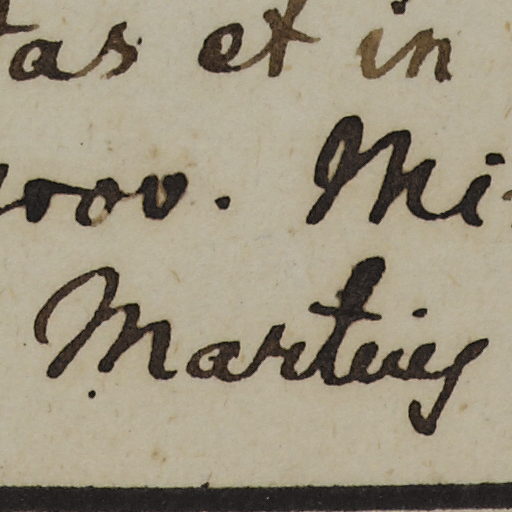 tas et in
rov. Mi-
Martius